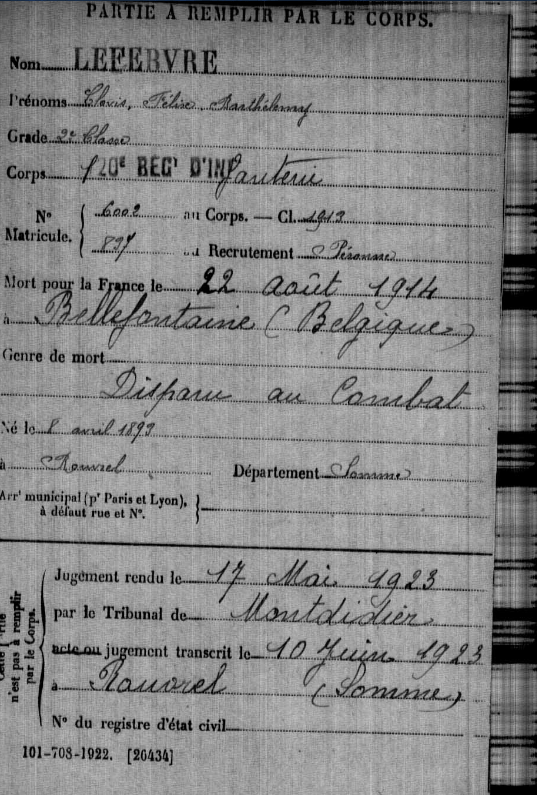 PARTIE À REMPLIR PAR LE CORPS.
Nom LEFEBVRE
Prénoms Clovis, Félix, Barthélemy
Grade 2e Classe
Corps 120e RÉGt D'INfanterie
N° Matricule. { 6002 au Corps. — Cl. 1913
897 au Recrutement Péronne
Mort pour la France le 22 août 1914
à Bellefontaine (Belgique)
Genre de mort
Disparu au Combat
Né le 8 avril 1893
à Rouvrel Département Somme
Arrt municipal (pr Paris et Lyon), à défaut rue et N°. }
Cette partie n'est pas à remplir par le Corps.
Jugement rendu le 17 Mai 1923
par le Tribunal de Montdidier
acte ou jugement transcrit le 10 Juin 1923
à Rouvrel (Somme)
N° du registre d'état civil
101-708-1922. [26434]